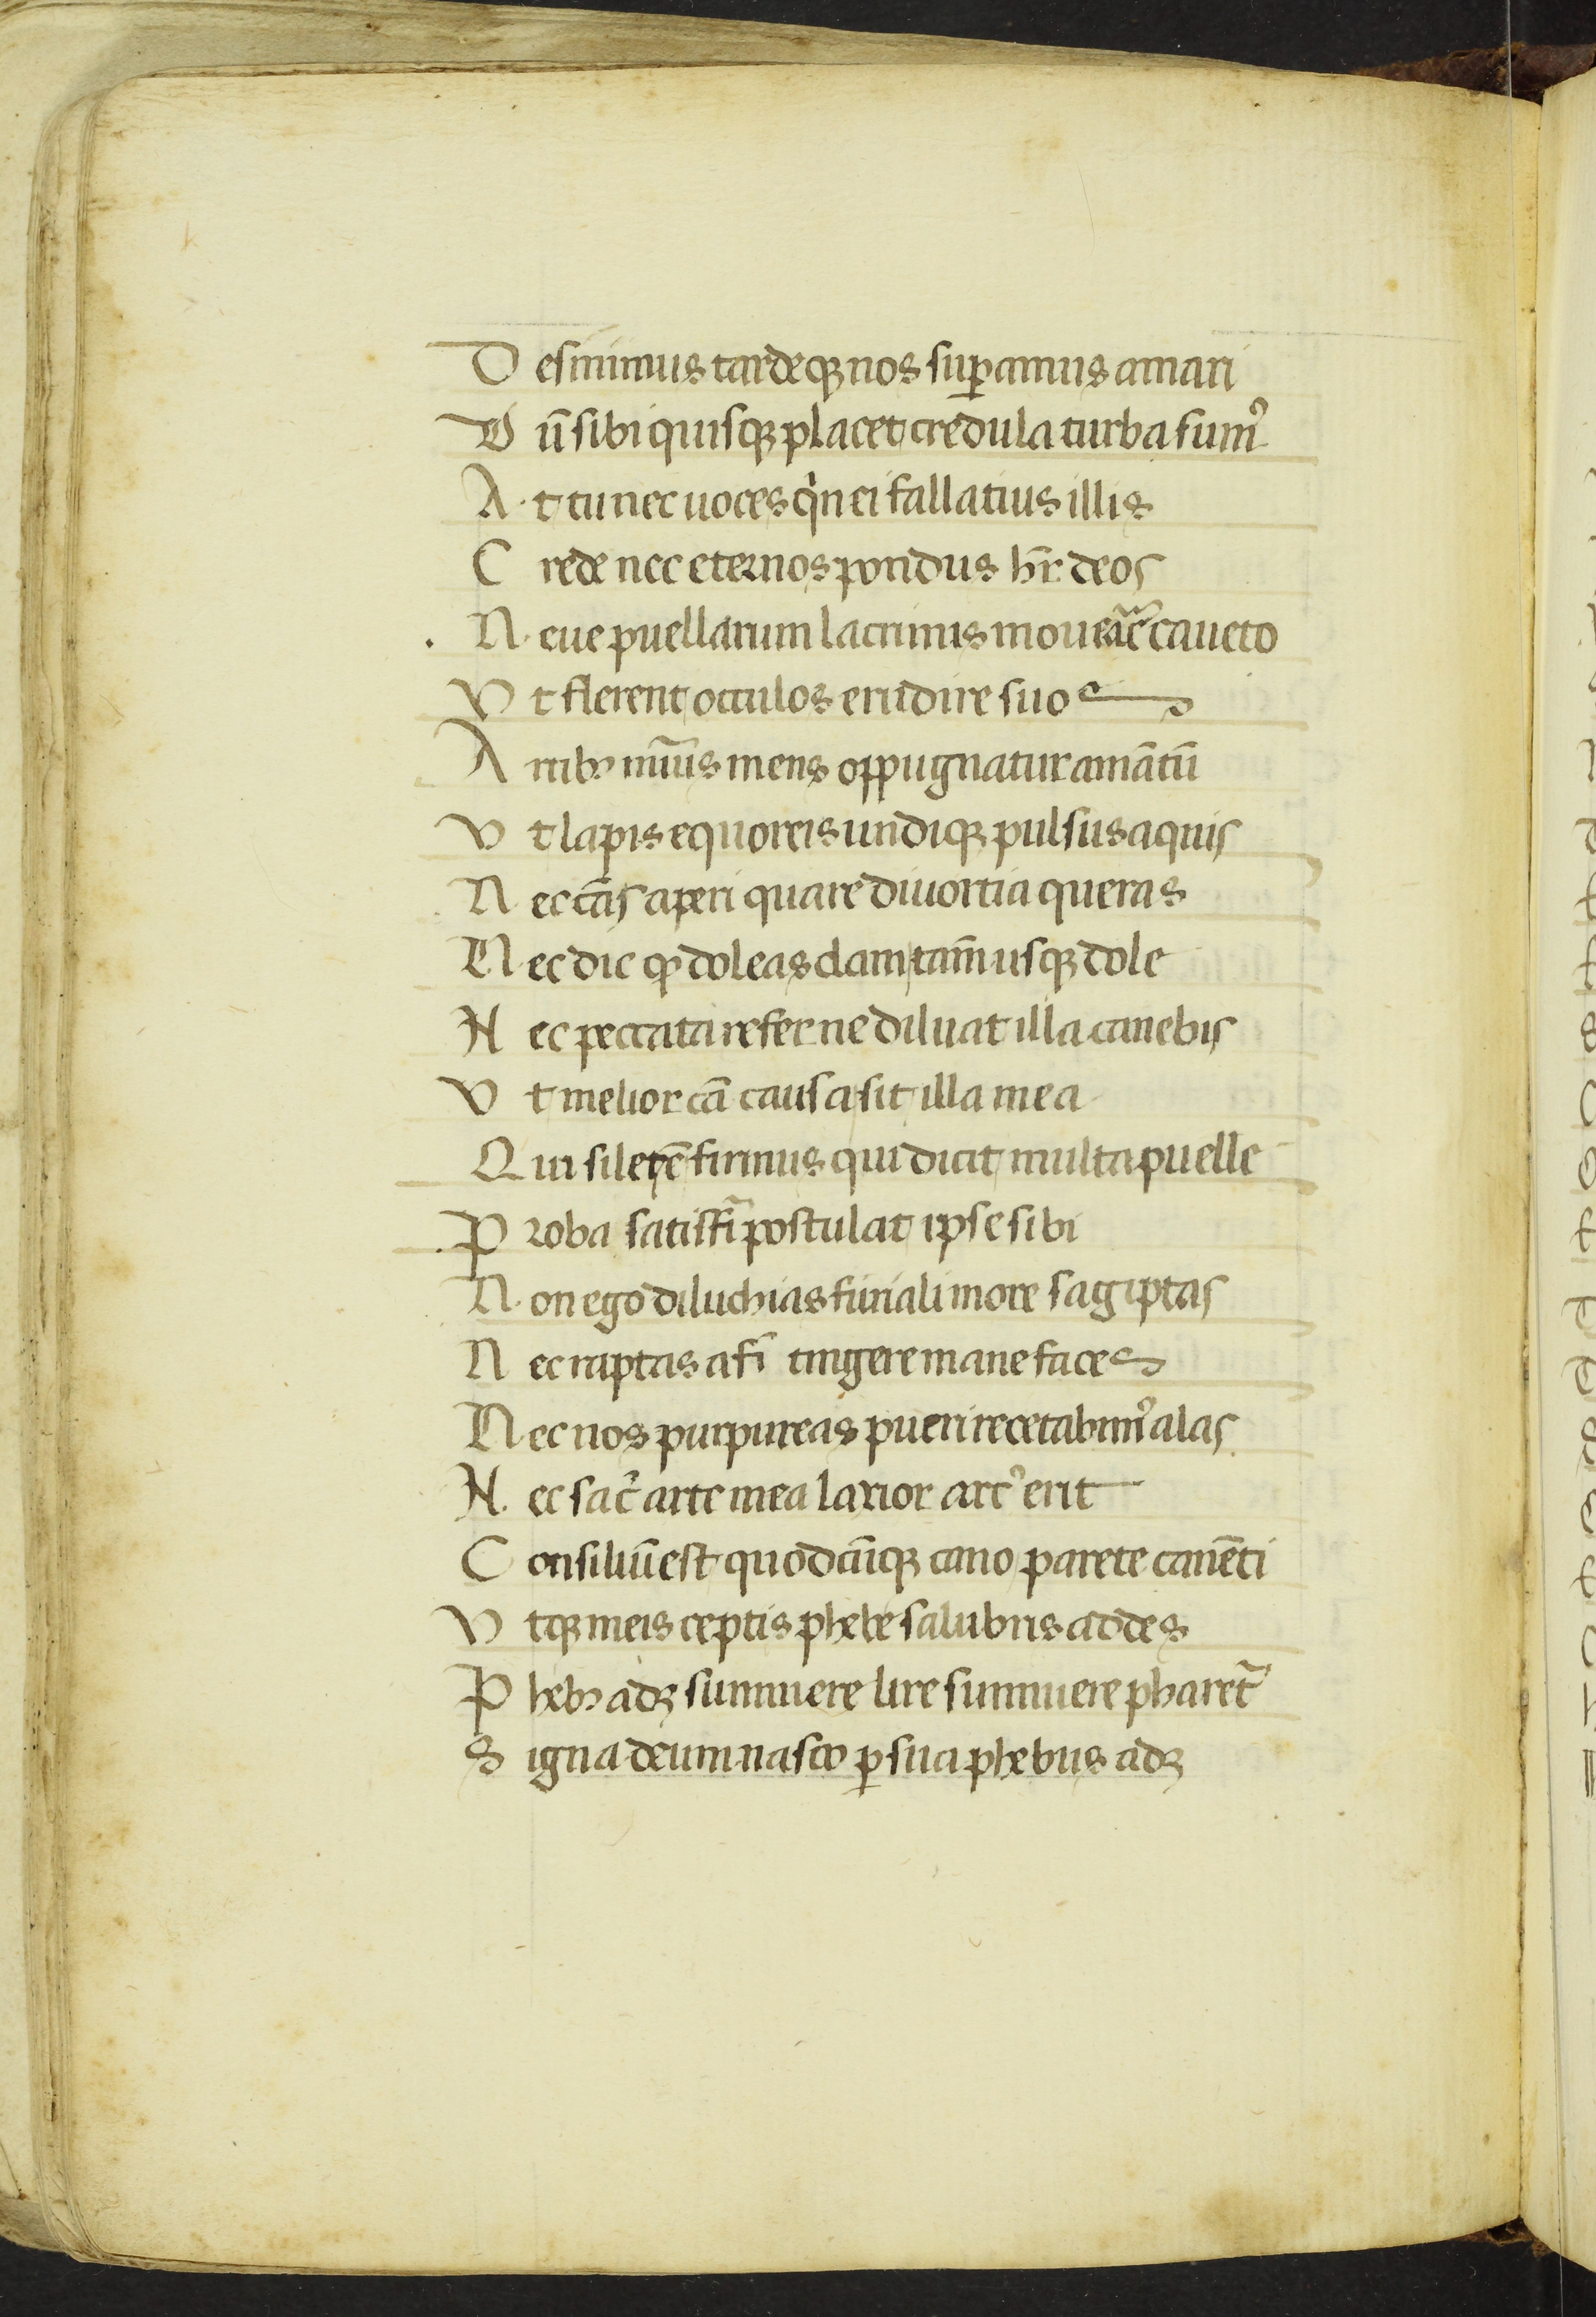 D esinimus tardeqꝫ nos suꝑamus amari
D ū sibi quisqꝫ placet credula turba sumꝰ
A t tu nec uoces qͥn ei fallatius illis
C rede nec eternos pondus hr̄e deos
N eue puellarum lacrimis moueãꝛꝰ caueto
V t flerent occulos erudire suos
A rtibꝫ nūīs mens oppugnatur amātū
V t lapis equoreis undiqꝫ pulsus aquis
N ec cās aperi quare diuortia queras
N ec dic ꝙ doleas clam tam̄ usqꝫ dole
N ec peccata refer ne diluat illa canebis
V t melior cā causa sit illa mea
Q ui silet ē firmus qui dicit multa puelle
P roba satisfiᷓ postulat ipse sibi
N on ego diluchias furiali more sagiptas
N ec raptas afī tingere mane faces
N ec nos purpureas pueri recetabimꝰ alas
N ec sac̄ arte mea laxior arcꝰ erit
C onsiliū est quodcūqꝫ cano parete canēti
V tqꝫ meis ceptis phebe salubris addes
P hebꝫ adꝫ sunnuere lire sunnuere pharetᷓ
S igna deum nasco ꝑ sua phebus adꝫ